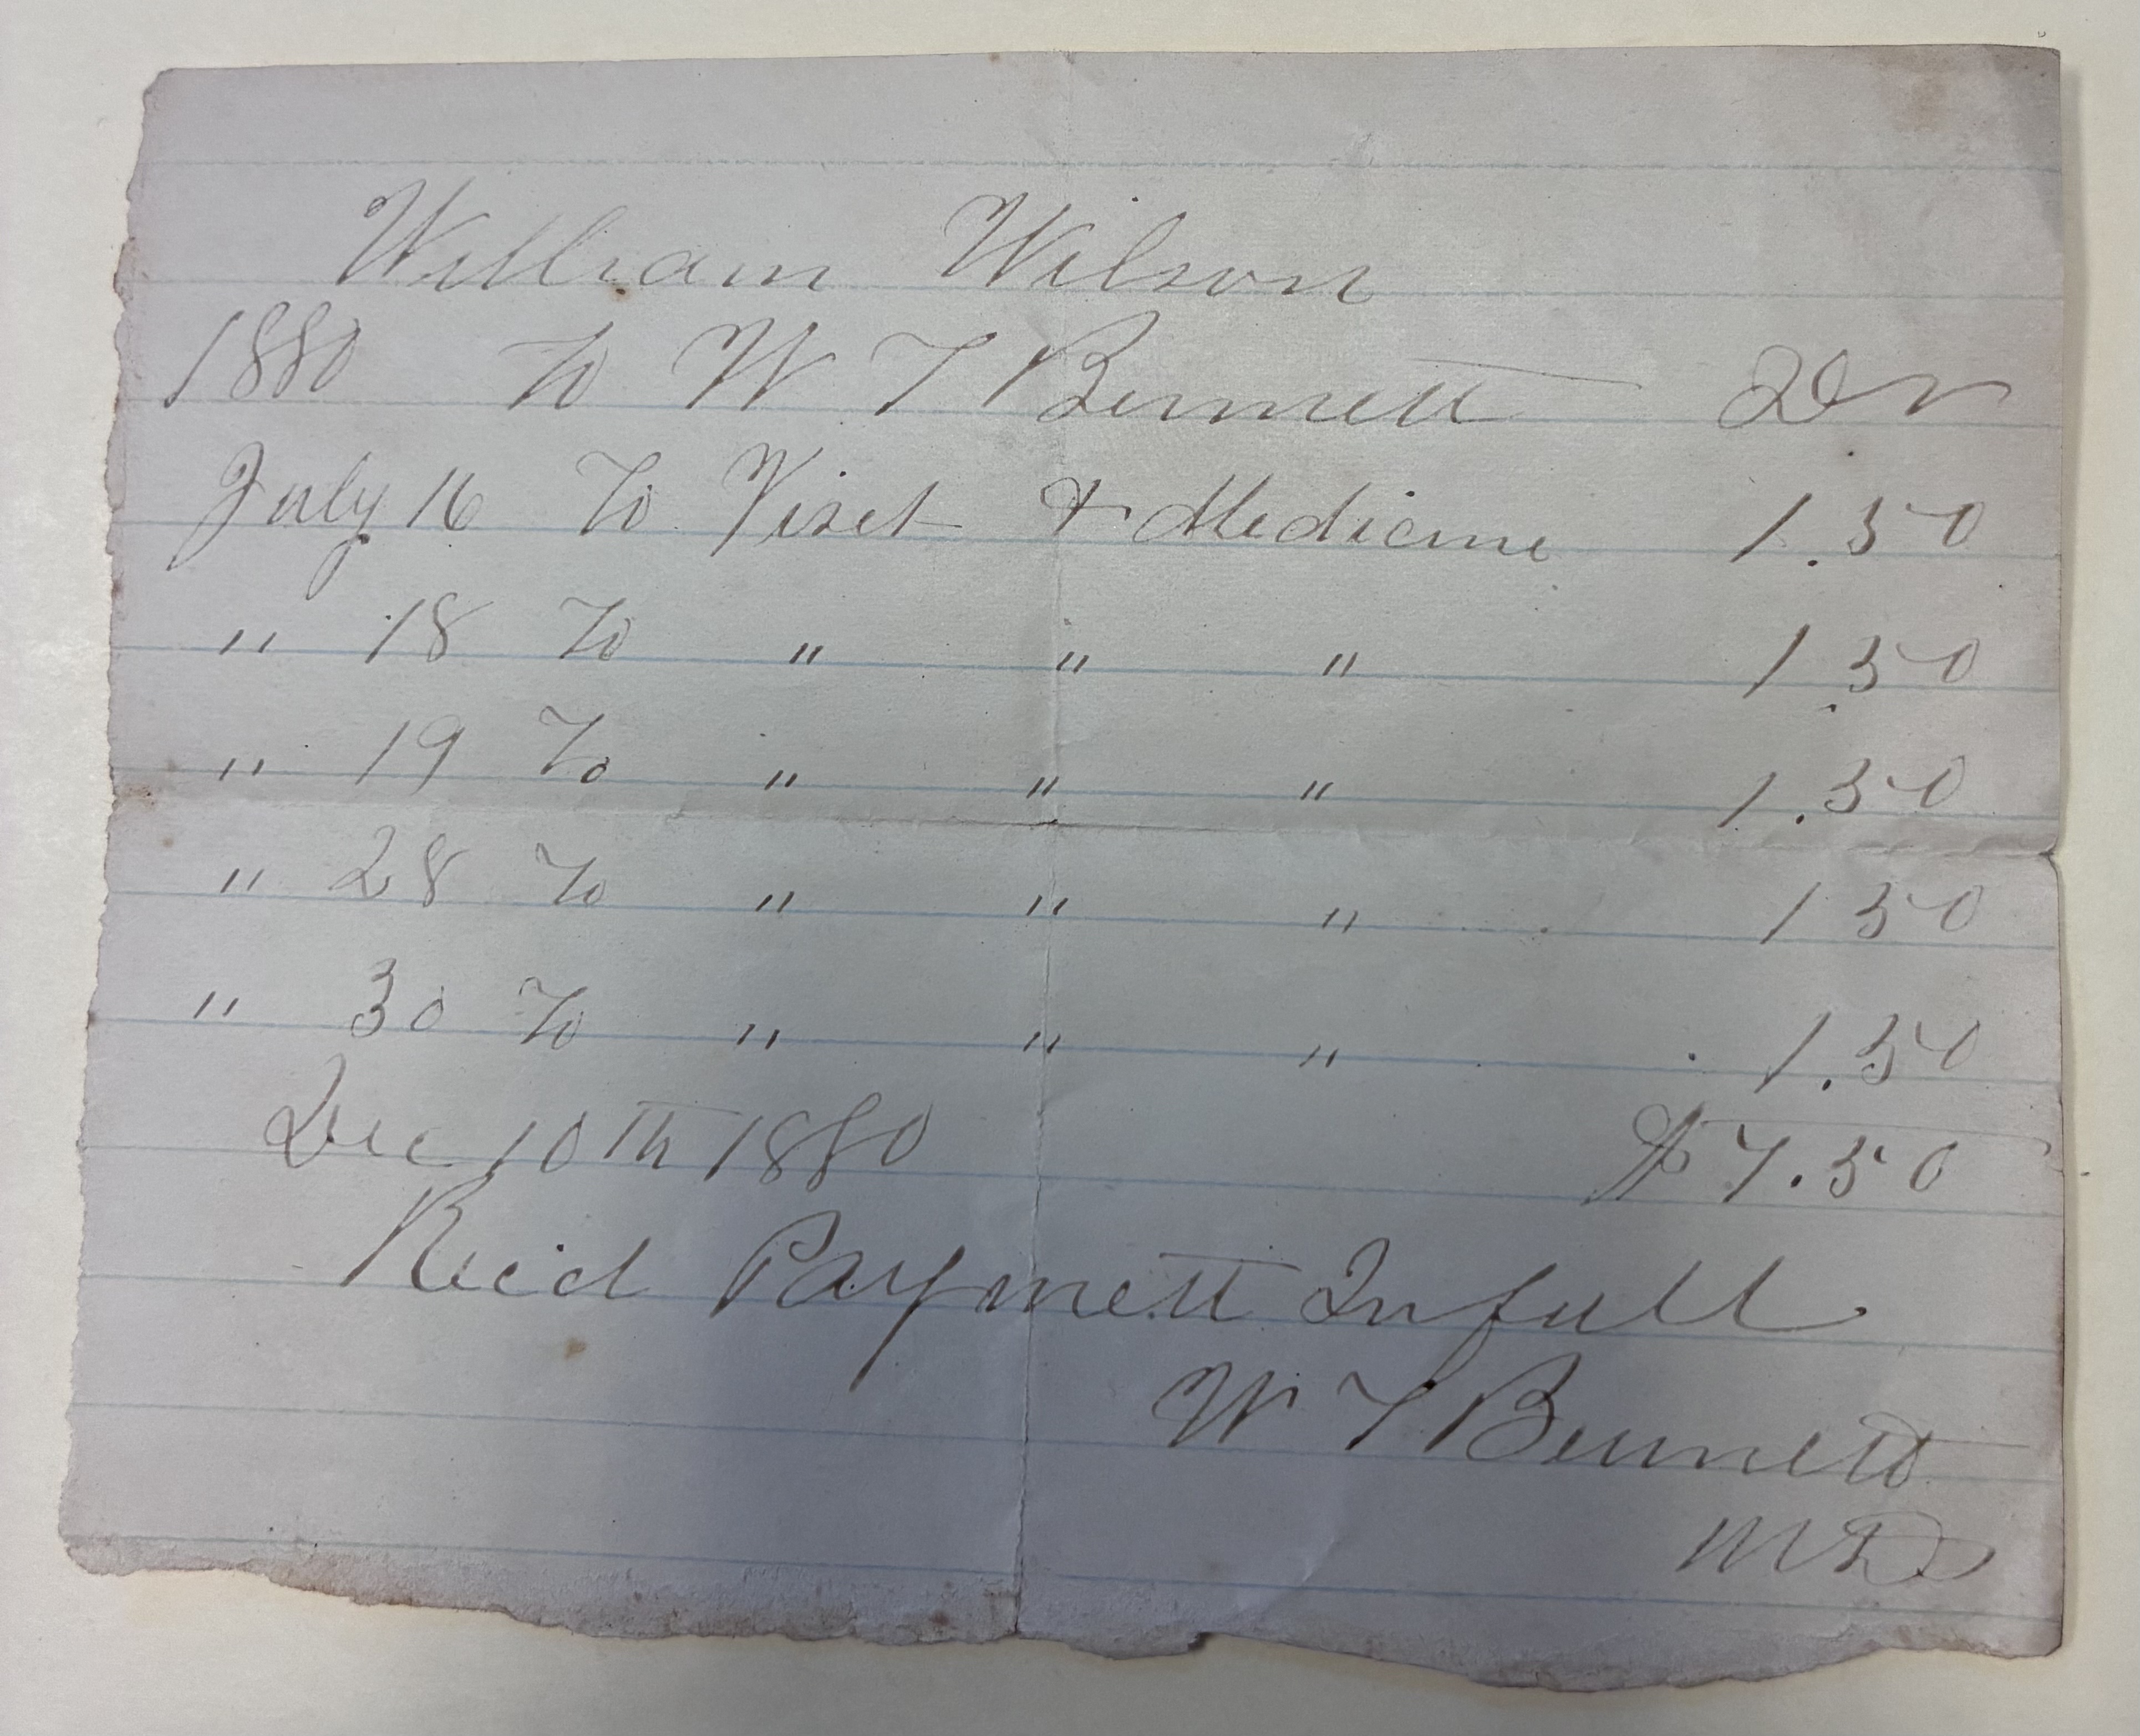 William Wilson
1880 To W T Bennett Dr
July 16 To Viset & Medicine 1.50
" 18 To " " " 1.50
" 19 To " " " 1.50
" 28 To " " " 1 50
" 30 To " " " 1.50
Dec 10th 1880 $7.50
Recd Paymett In full
W T Bennett
MD